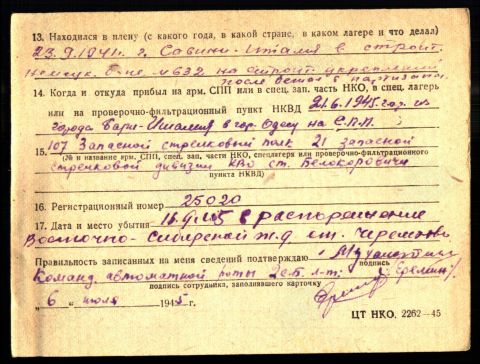 13. Находился в плену (с какого года, в какой стране, в каком лагере и что делал)
23.9.1941г. г. Савини-Италя в строит.
немецк. б-не №632 на строит. укреплений
после бежал в партизаны
14. Когда и откуда прибыл на арм. СПП или в спец. зап. часть НКО, в спец. лагерь
или на проверочно-фильтрационный пункт НКВД 21.6.1945 год. из
города Бари-Италия в гор. Одесу на С.П.П.
15. 107 Запасной стрелковый полк 21 запасной
(№ и название арм. СПП, спец. зап. части НКО, спецлагеря или проверочно-фильтрационного
стрелковой дивизии КВО ст. Белокоровичи
пункта НКВД)
16. Регистрационный номер 25020
17. Дата и место убытия 16.9.45 в распоряжение
Восточно-Сибирской ж.д. ст. Черемхово
Правильность записанных на меня сведений подтверждаю
подпись
Команд. автоматной роты 2с.б. л-т.
подпись сотрудника, заполнявшего карточку
„ 6 " июля 1945 г.
ЦТ НКО. 2262—45